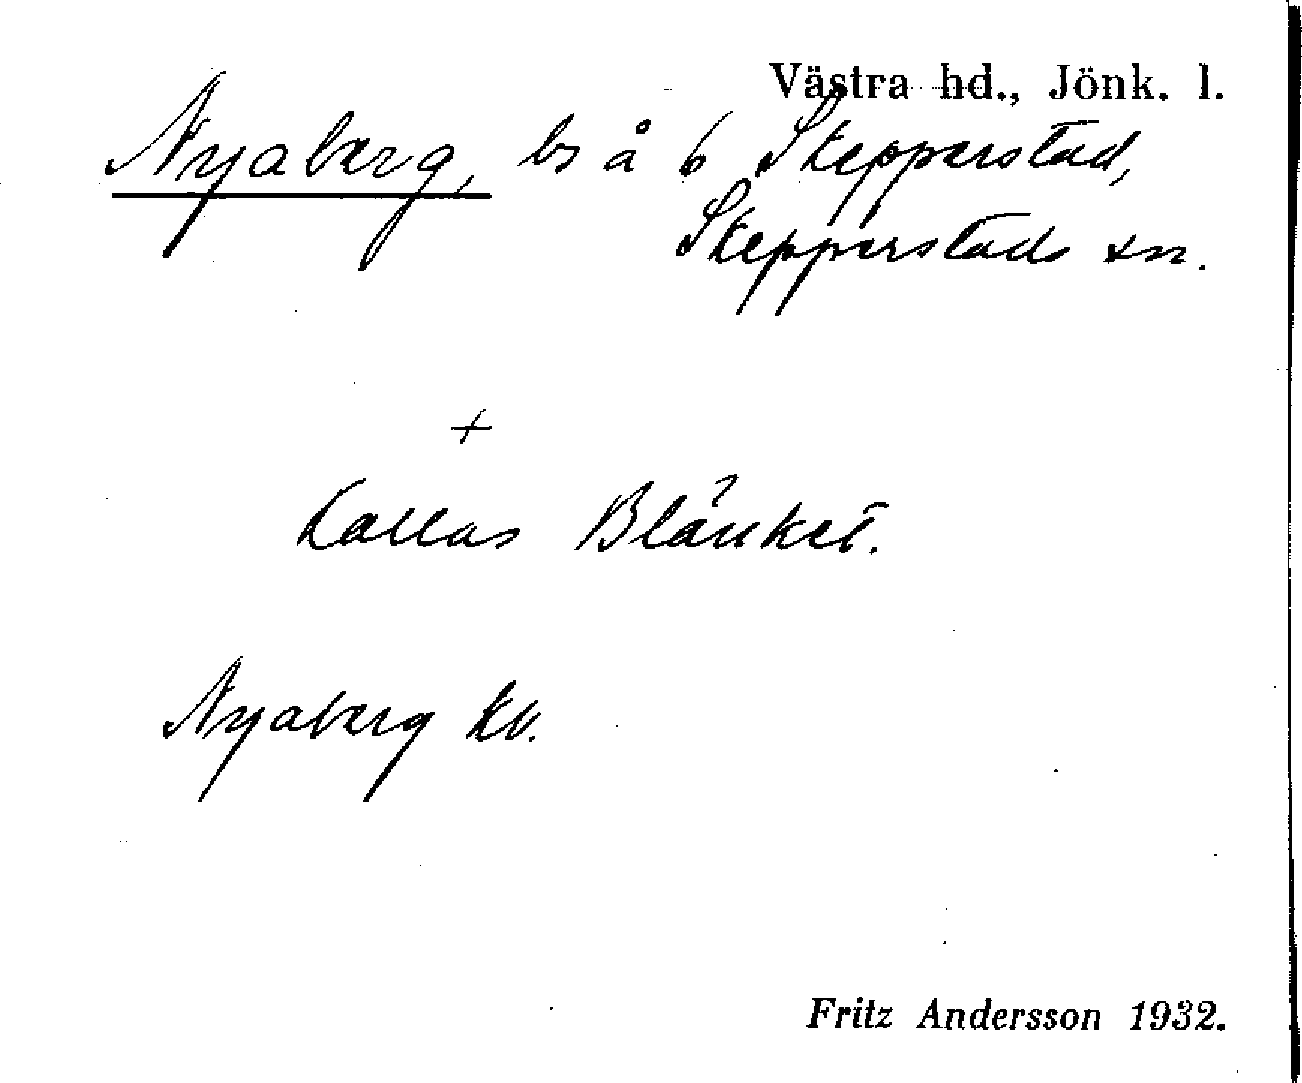 Västra hd., Jönk. l.
Nyaberg, bs å 6 Skepperstad,
Skepperstads sn.
+
Kallas Blänket.
Nyaberg kv.
Fritz Andersson 1932.